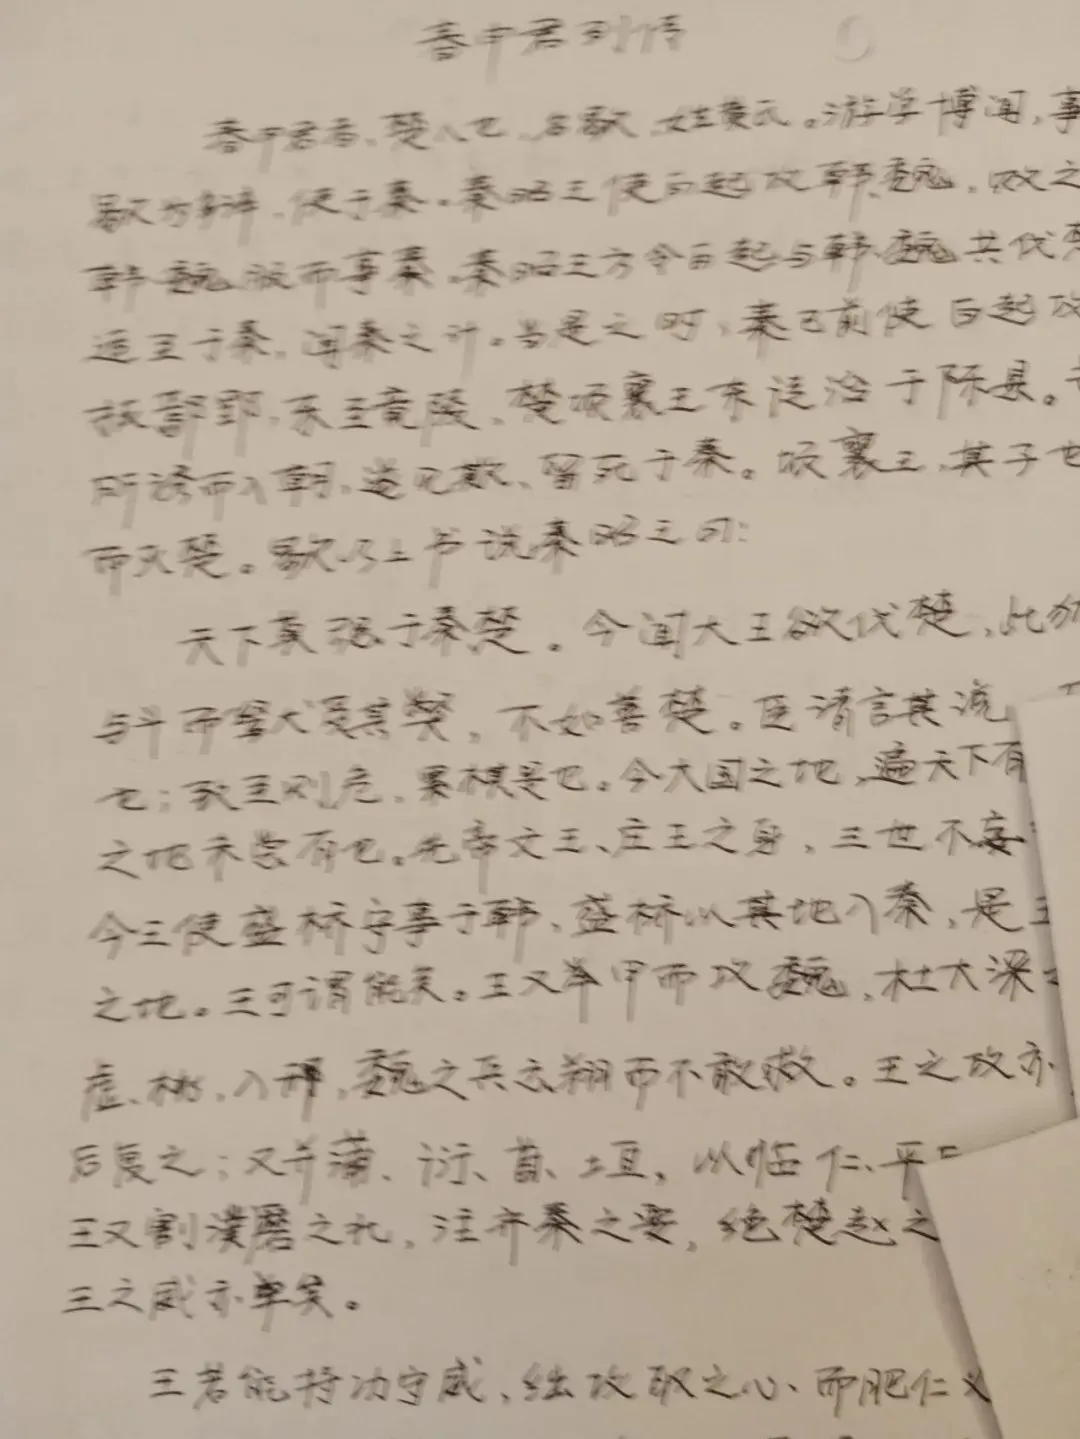 春申君列传
春申君者、楚人也、名歇、姓黄氏。游学博闻,事
歇为辩、使于秦。秦昭王使白起攻韩、魏、败之
韩、魏服而事秦。秦昭王方令白起与韩、魏共伐楚
适至于秦,闻秦之计。当是之时,秦已前使白起攻
拔鄢郢,东至竟陵、楚顷襄王东徙治于陈县。
所诱而入朝,遂见欺、留死于秦。顷襄王,其子也
而灭楚。歇乃上书说秦昭王曰:
天下莫强于秦楚。今闻大王欲伐楚,此犹
与斗而驽犬受其弊,不如善楚。臣请言其说
也;致至则危、累棋是也。今大国之地,遍天下有
之地未尝有也。先帝文王、庄王之身,三世不妄
今王使盛桥守事于韩、盛桥以其地入秦,是王
之地。王可谓能矣。王又举甲而攻魏,杜大梁
虚、桃,入邢,魏之兵云翔而不敢救。王之攻亦
后复之;又并蒲、衍、首、垣,以临仁、平
王又割濮磨之北,注齐秦之要,绝楚赵之
王之威亦单矣。
王若能持功守威、绌攻取之心、而肥仁义